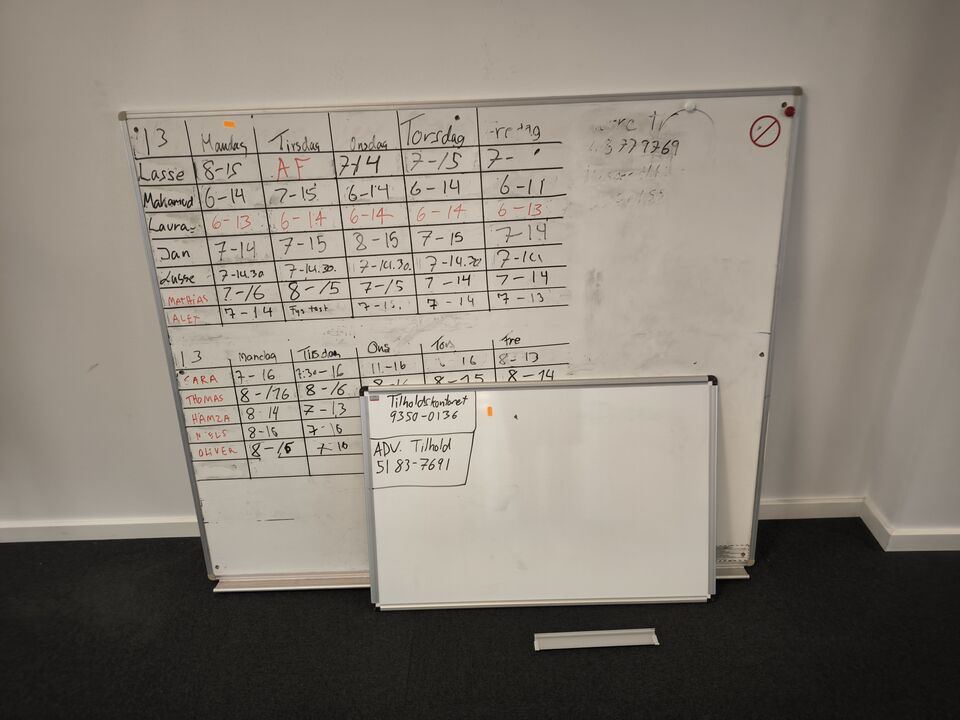 13 Mandag Tirsdag Onsdag Torsdag Fredag
Lasse 8-15 AF 7-14 7-15 7-
Mahamud 6-14 7-15 6-14 6-14 6-11
Laura 6-13 6-14 6-14 6-14 6-13
Jan 7-14 7-15 8-15 7-15 7-14
Lasse 7-14.30 7-14.30. 7-14.30. 7-14.30 7-14
MATHIAS 7-16 8-15 7-15 7-14 7-14
ALEX 7-14 Fys test 7-15. 7-14 7-13
13 Mandag Tirsdag Ons Tors Fre
SARA 7-16 7:30-16 11-16 16 8-13
THOMAS 8-16 8-16 8-16 8-15 8-14
HAMZA 8-14 7-13
NIELS 8-16 7-16
OLIVER 8-16 7-16
Tilholdskontoret
9350-0136
ADV. Tilhold
5183-7691